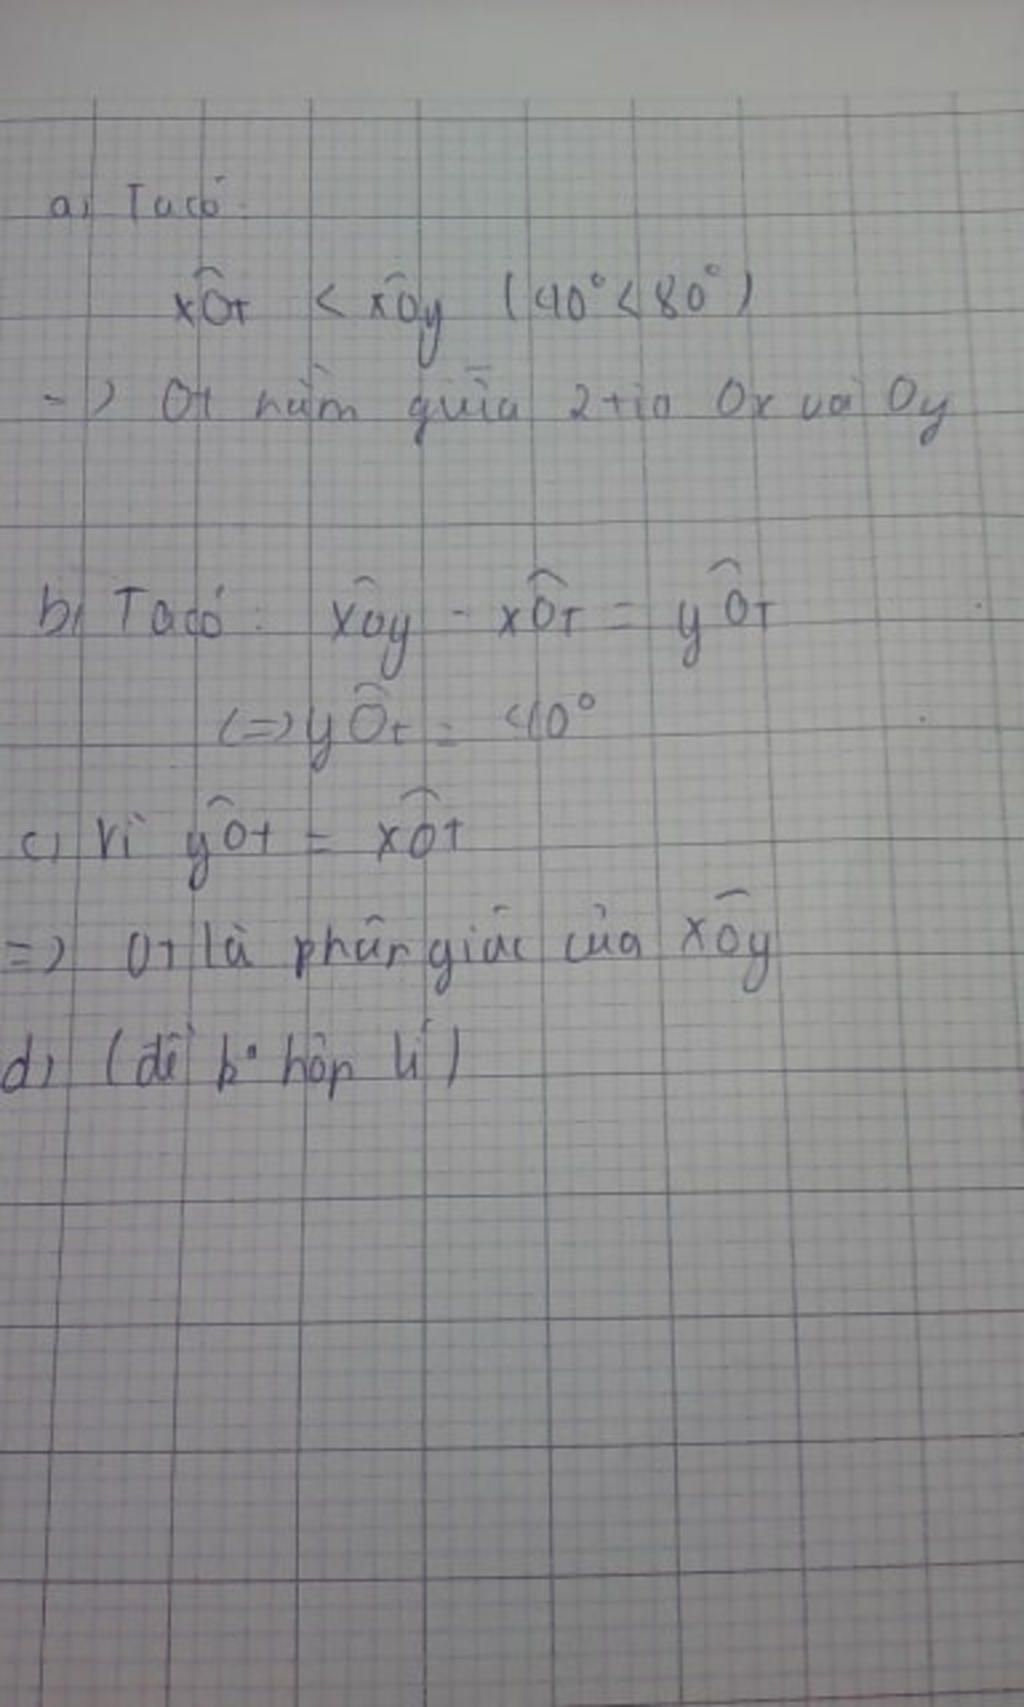 a) Ta có:
xÔt < xÔy (40° < 80°)
=> Ot nằm giữa 2 tia Ox và Oy
b) Ta có: xÔy - xÔt = yÔt
<=> yÔt = 40°
c) Vì yÔt = xÔt
=> Ot là phân giác của xÔy
d) (đề k° hợp lí)